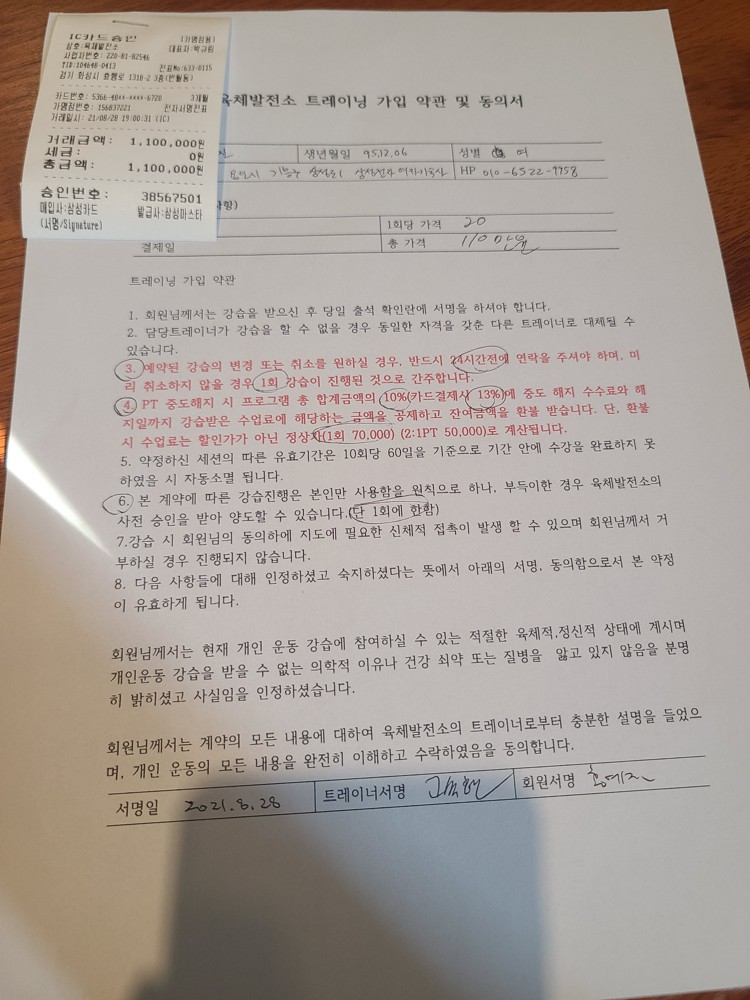 IC카드승인 (가맹점용)
상호:육체발전소 대표자:박규림
사업자번호: 220-81-82546
TID:104648-0413 전표No:633-0115
경기 화성시 효행로 1310-2 3층(반월동)
카드번호: 5366-48**-****-6720 3개월
가맹점번호: 156837221 전자서명전표
거래일시: 21/08/28 19:00:31 (IC)
거래금액: 1,100,000원
세금: 0원
총금액: 1,100,000원
승인번호: 38567501
매입사:삼성카드 발급사:삼성마스타
(서명/Signature)
육체발전소 트레이닝 가입 약관 및 동의서
생년월일 95.12.06 성별 여
HP 010-6522-7758
사항)
1회당 가격 20
결제일 총 가격 110만원
트레이닝 가입 약관
1. 회원님께서는 강습을 받으신 후 당일 출석 확인란에 서명을 하셔야 합니다.
2. 담당트레이너가 강습을 할 수 없을 경우 동일한 자격을 갖춘 다른 트레이너로 대체될 수
있습니다.
3. 예약된 강습의 변경 또는 취소를 원하실 경우, 반드시 24시간전에 연락을 주셔야 하며, 미
리 취소하지 않을 경우 1회 강습이 진행된 것으로 간주합니다.
4. PT 중도해지 시 프로그램 총 합계금액의 10%(카드결제시 13%)에 중도 해지 수수료와 해
지일까지 강습받은 수업료에 해당하는 금액을 공제하고 잔여금액을 환불 받습니다. 단, 환불
시 수업료는 할인가가 아닌 정상가(1회 70,000) (2:1PT 50,000)로 계산됩니다.
5. 약정하신 세션의 따른 유효기간은 10회당 60일을 기준으로 기간 안에 수강을 완료하지 못
하였을 시 자동소멸 됩니다.
6. 본 계약에 따른 강습진행은 본인만 사용함을 원칙으로 하나, 부득이한 경우 육체발전소의
사전 승인을 받아 양도할 수 있습니다.(단 1회에 한함)
7.강습 시 회원님의 동의하에 지도에 필요한 신체적 접촉이 발생 할 수 있으며 회원님께서 거
부하실 경우 진행되지 않습니다.
8. 다음 사항들에 대해 인정하셨고 숙지하셨다는 뜻에서 아래의 서명, 동의함으로서 본 약정
이 유효하게 됩니다.
회원님께서는 현재 개인 운동 강습에 참여하실 수 있는 적절한 육체적,정신적 상태에 계시며
개인운동 강습을 받을 수 없는 의학적 이유나 건강 쇠약 또는 질병을 앓고 있지 않음을 분명
히 밝히셨고 사실임을 인정하셨습니다.
회원님께서는 계약의 모든 내용에 대하여 육체발전소의 트레이너로부터 충분한 설명을 들었으
며, 개인 운동의 모든 내용을 완전히 이해하고 수락하였음을 동의합니다.
서명일 2021.8.28 트레이너서명 회원서명 홍예지